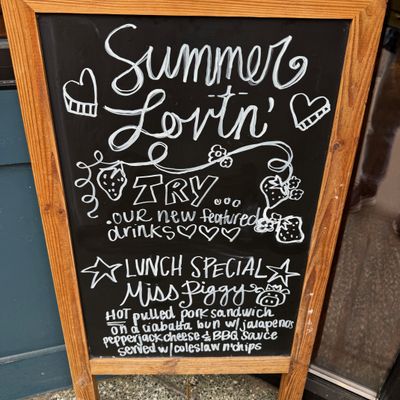 Summer
Lovin'
TRY...
.our new featured
drinks
LUNCH SPECIAL
Miss Piggy
HOT pulled pork sandwich
on a ciabatta bun w/ jalapenos
pepperjack cheese & BBQ sauce
served w/ coleslaw n' chips